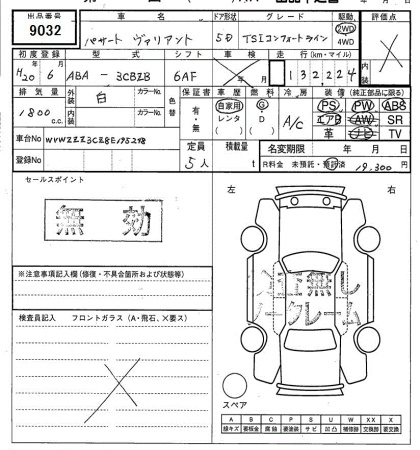 出品番号 車名 ドア形状 グレード 駆動 評価点
9032 パサート ヴァリアント 5D TSIコンフォートライン 2WD 4WD
初度登録 型式 シフト 車検 走行(km・マイル)
H20年6月 ABA-3CBZB 6AF 年 月 132,224
排気量 外装 カラーNo. 色替 保証書 車歴 燃料 冷房 装備(純正部品に限る)
1800c.c. 白 有・無 自家用 レンタ G D A/C PS PW ABS
内装 カラーNo. エアB AW SR
車台No WVWZZZ3CZ8E195298 革 ナビ TV
登録No 定員 積載量 名変期限 年 月 日
5人 t R料金 未預託・預託済 19,300円
セールスポイント 左 右
無効
※注意事項記入欄(修復・不具合箇所および状態等)
保証無し
ノークレーム
検査員記入 フロントガラス(A・飛石、X要ス)
スペア
A B C P S U W X XX
線キズ 要板金 腐蝕 要塗装 サビ 凹凸 補修跡 要交換